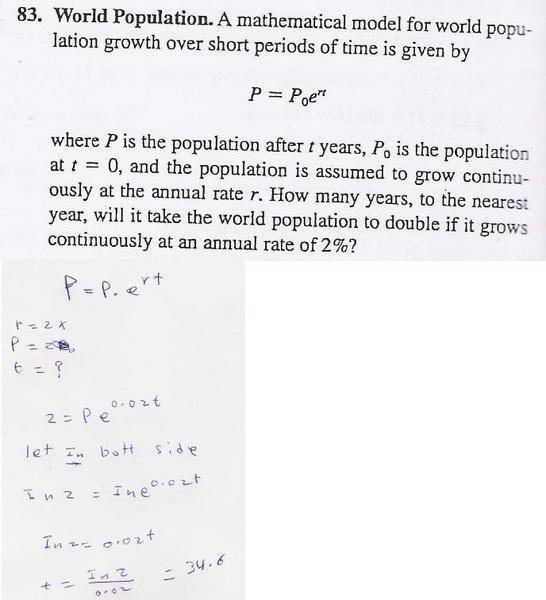 83. World Population. A mathematical model for world popu-
lation growth over short periods of time is given by
P = P₀eʳᵗ
where P is the population after t years, P₀ is the population
at t = 0, and the population is assumed to grow continu-
ously at the annual rate r. How many years, to the nearest
year, will it take the world population to double if it grows
continuously at an annual rate of 2%?
P = P. e^rt
r = 2 x
P = 2
t = ?
2 = P e^0.02t
let In bott side
In 2 = In e^0.02t
In 2 = 0.02t
t = In 2 / 0.02 = 34.6